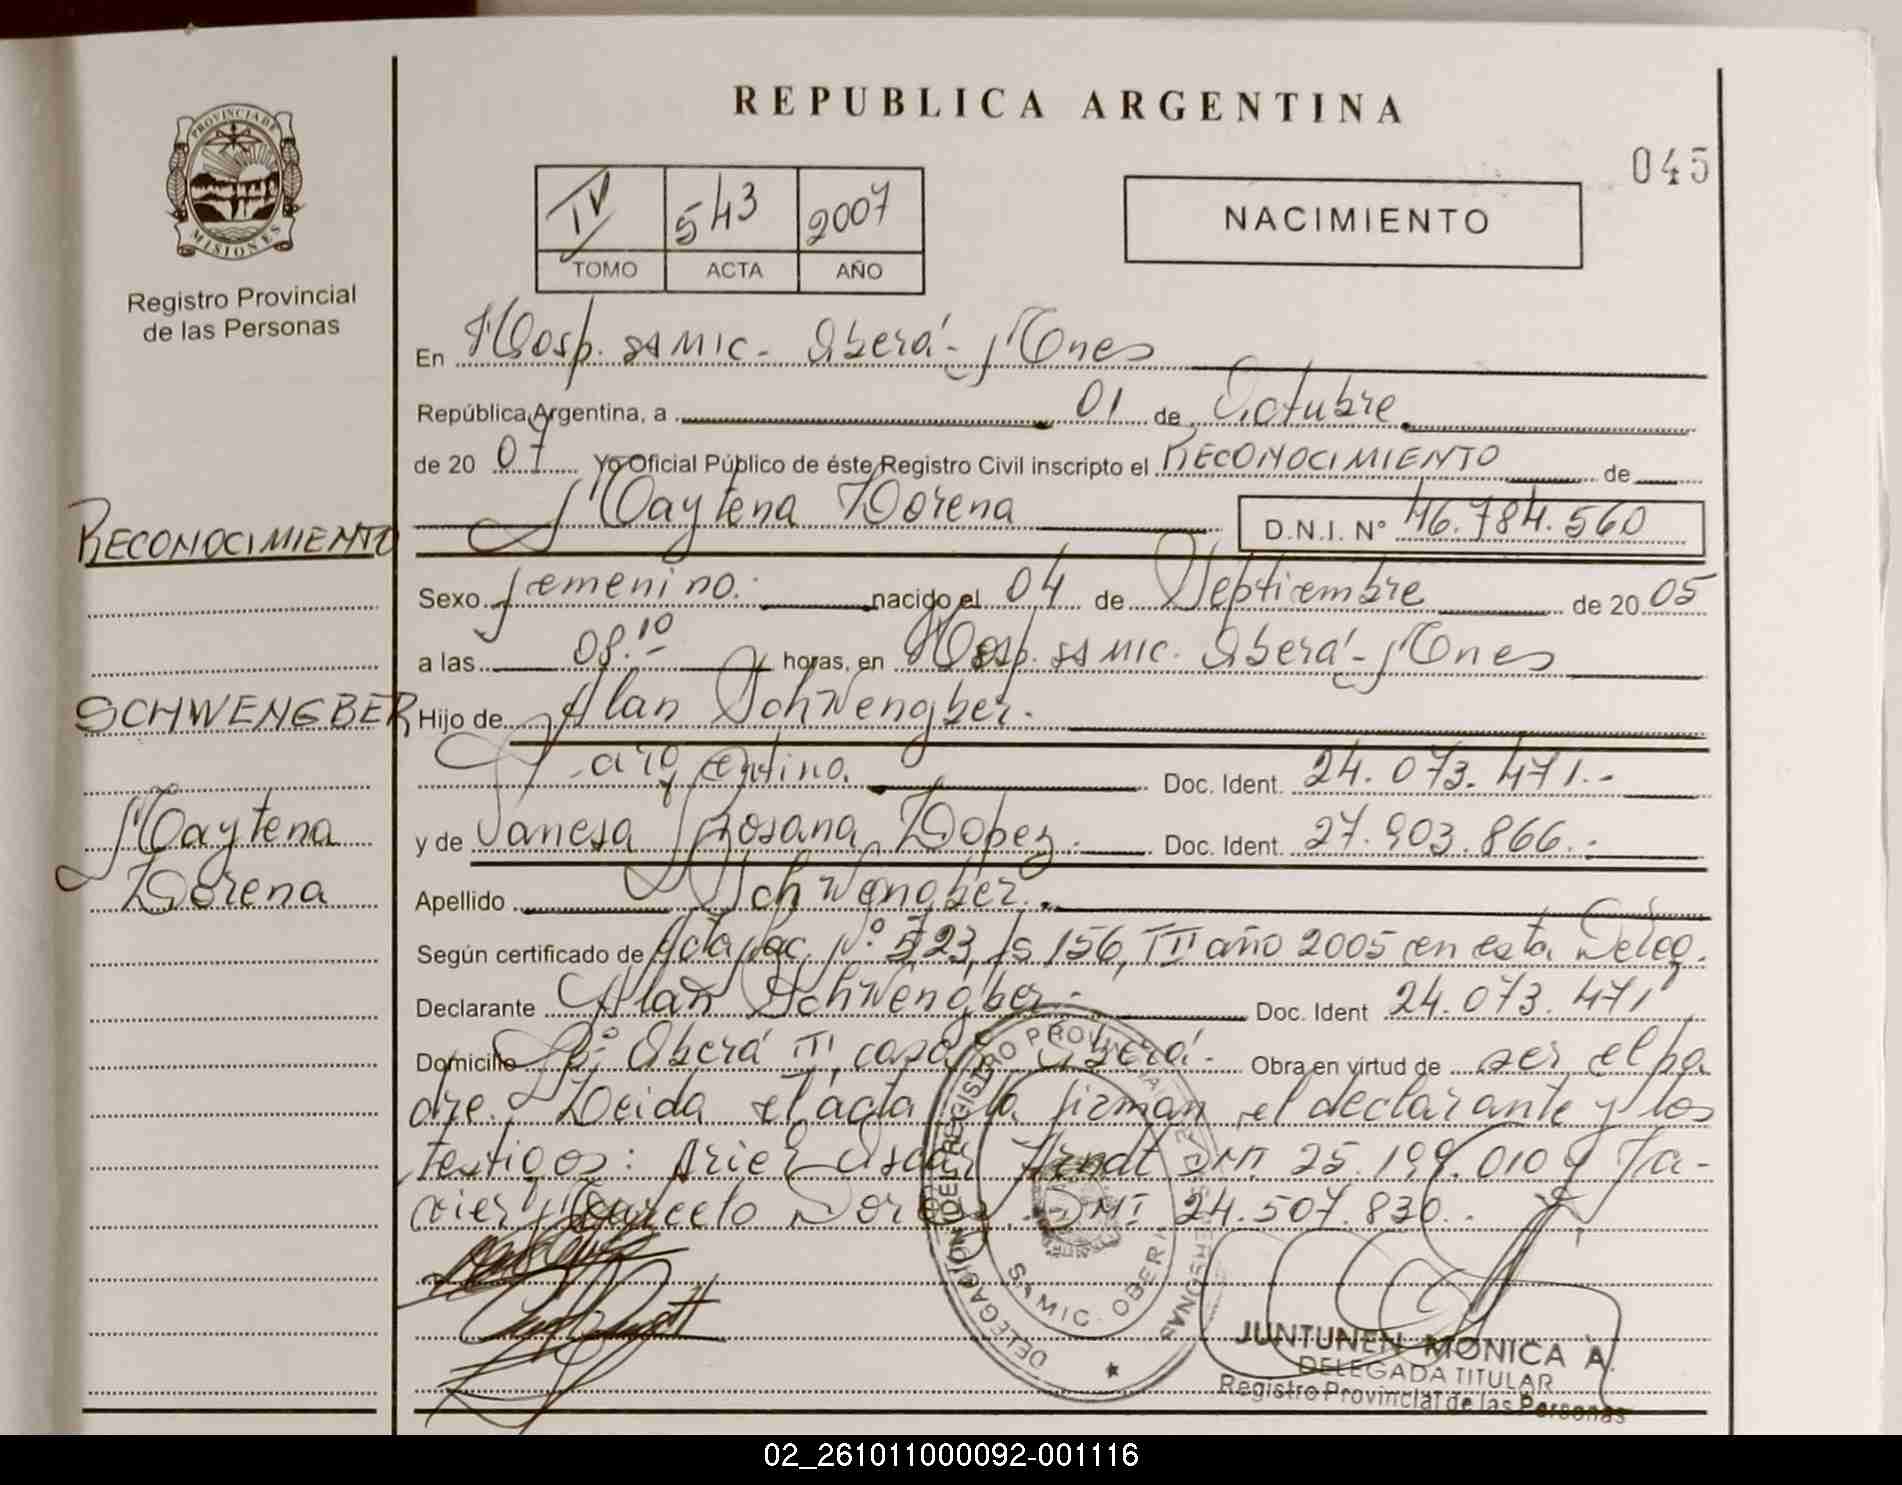 REPUBLICA ARGENTINA
045
PROVINCIA DE MISIONES
Registro Provincial
de las Personas
IV 543 2007
TOMO ACTA AÑO
NACIMIENTO
En Hosp. SAMIC - Oberá - Mnes
República Argentina, a 01 de Octubre
de 20 07 Yo Oficial Público de éste Registro Civil inscripto el RECONOCIMIENTO de
Maytena Lorena D.N.I. Nº 46.784.560
RECONOCIMIENTO
Sexo femenino. nacido el 04 de Septiembre de 20 05
a las 08.10 horas, en Hosp. SAMIC. Oberá - Mnes
SCHWENGBER
Hijo de Alan Schwengber.
argentino. Doc. Ident. 24.073.471.-
Maytena
Lorena
y de Vanesa Rosana Lopez.- Doc. Ident. 27.903.866.-
Apellido Schwengber.
Según certificado de Acta Nº 523, fs 156, TII año 2005 en esta Deleg.
Declarante Alan Schwengber.- Doc. Ident 24.073.471
Domicilio Bº Oberá III, casa Oberá.- Obra en virtud de ser el pa
dre. Leida el acta la firman el declarante y los
testigos: Ariel Oscar Arndt DMI. 25.199.010 y Ja-
vier Marcelo DMI 24.507.830.-
DELEGACION DEL REGISTRO PROVINCIAL DE LAS PERSONAS
SAMIC. OBERA
JUNTUNEN MONICA A.
DELEGADA TITULAR
Registro Provincial de las Personas
02_261011000092-001116